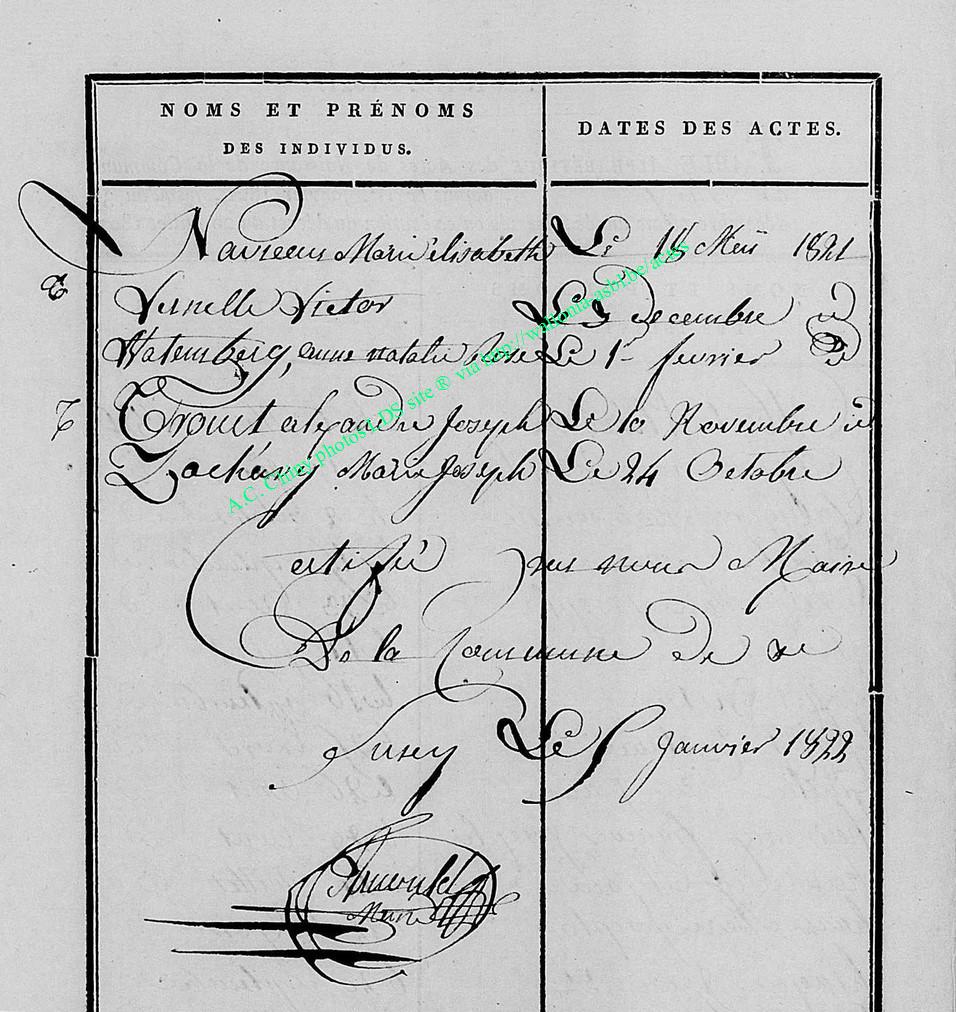 NOMS ET PRÉNOMS
DES INDIVIDUS.
DATES DES ACTES.
Marie élisabeth Le 18 Meii 1821
Vernelle Victor Le 9 Decembre id
Watemberg, anne natalie Rose Le 1r fevrier id
T Trouet alexandre Joseph Le 10 Novembre id
Zachary Marie Joseph Le 24 Octobre
Certifié par nous Maire
De la Commune De
Suxy Le 5 Janvier 1822
Maire
A.C. Chiny photos LDS site ® via http://wallonia-asbl.be/actes